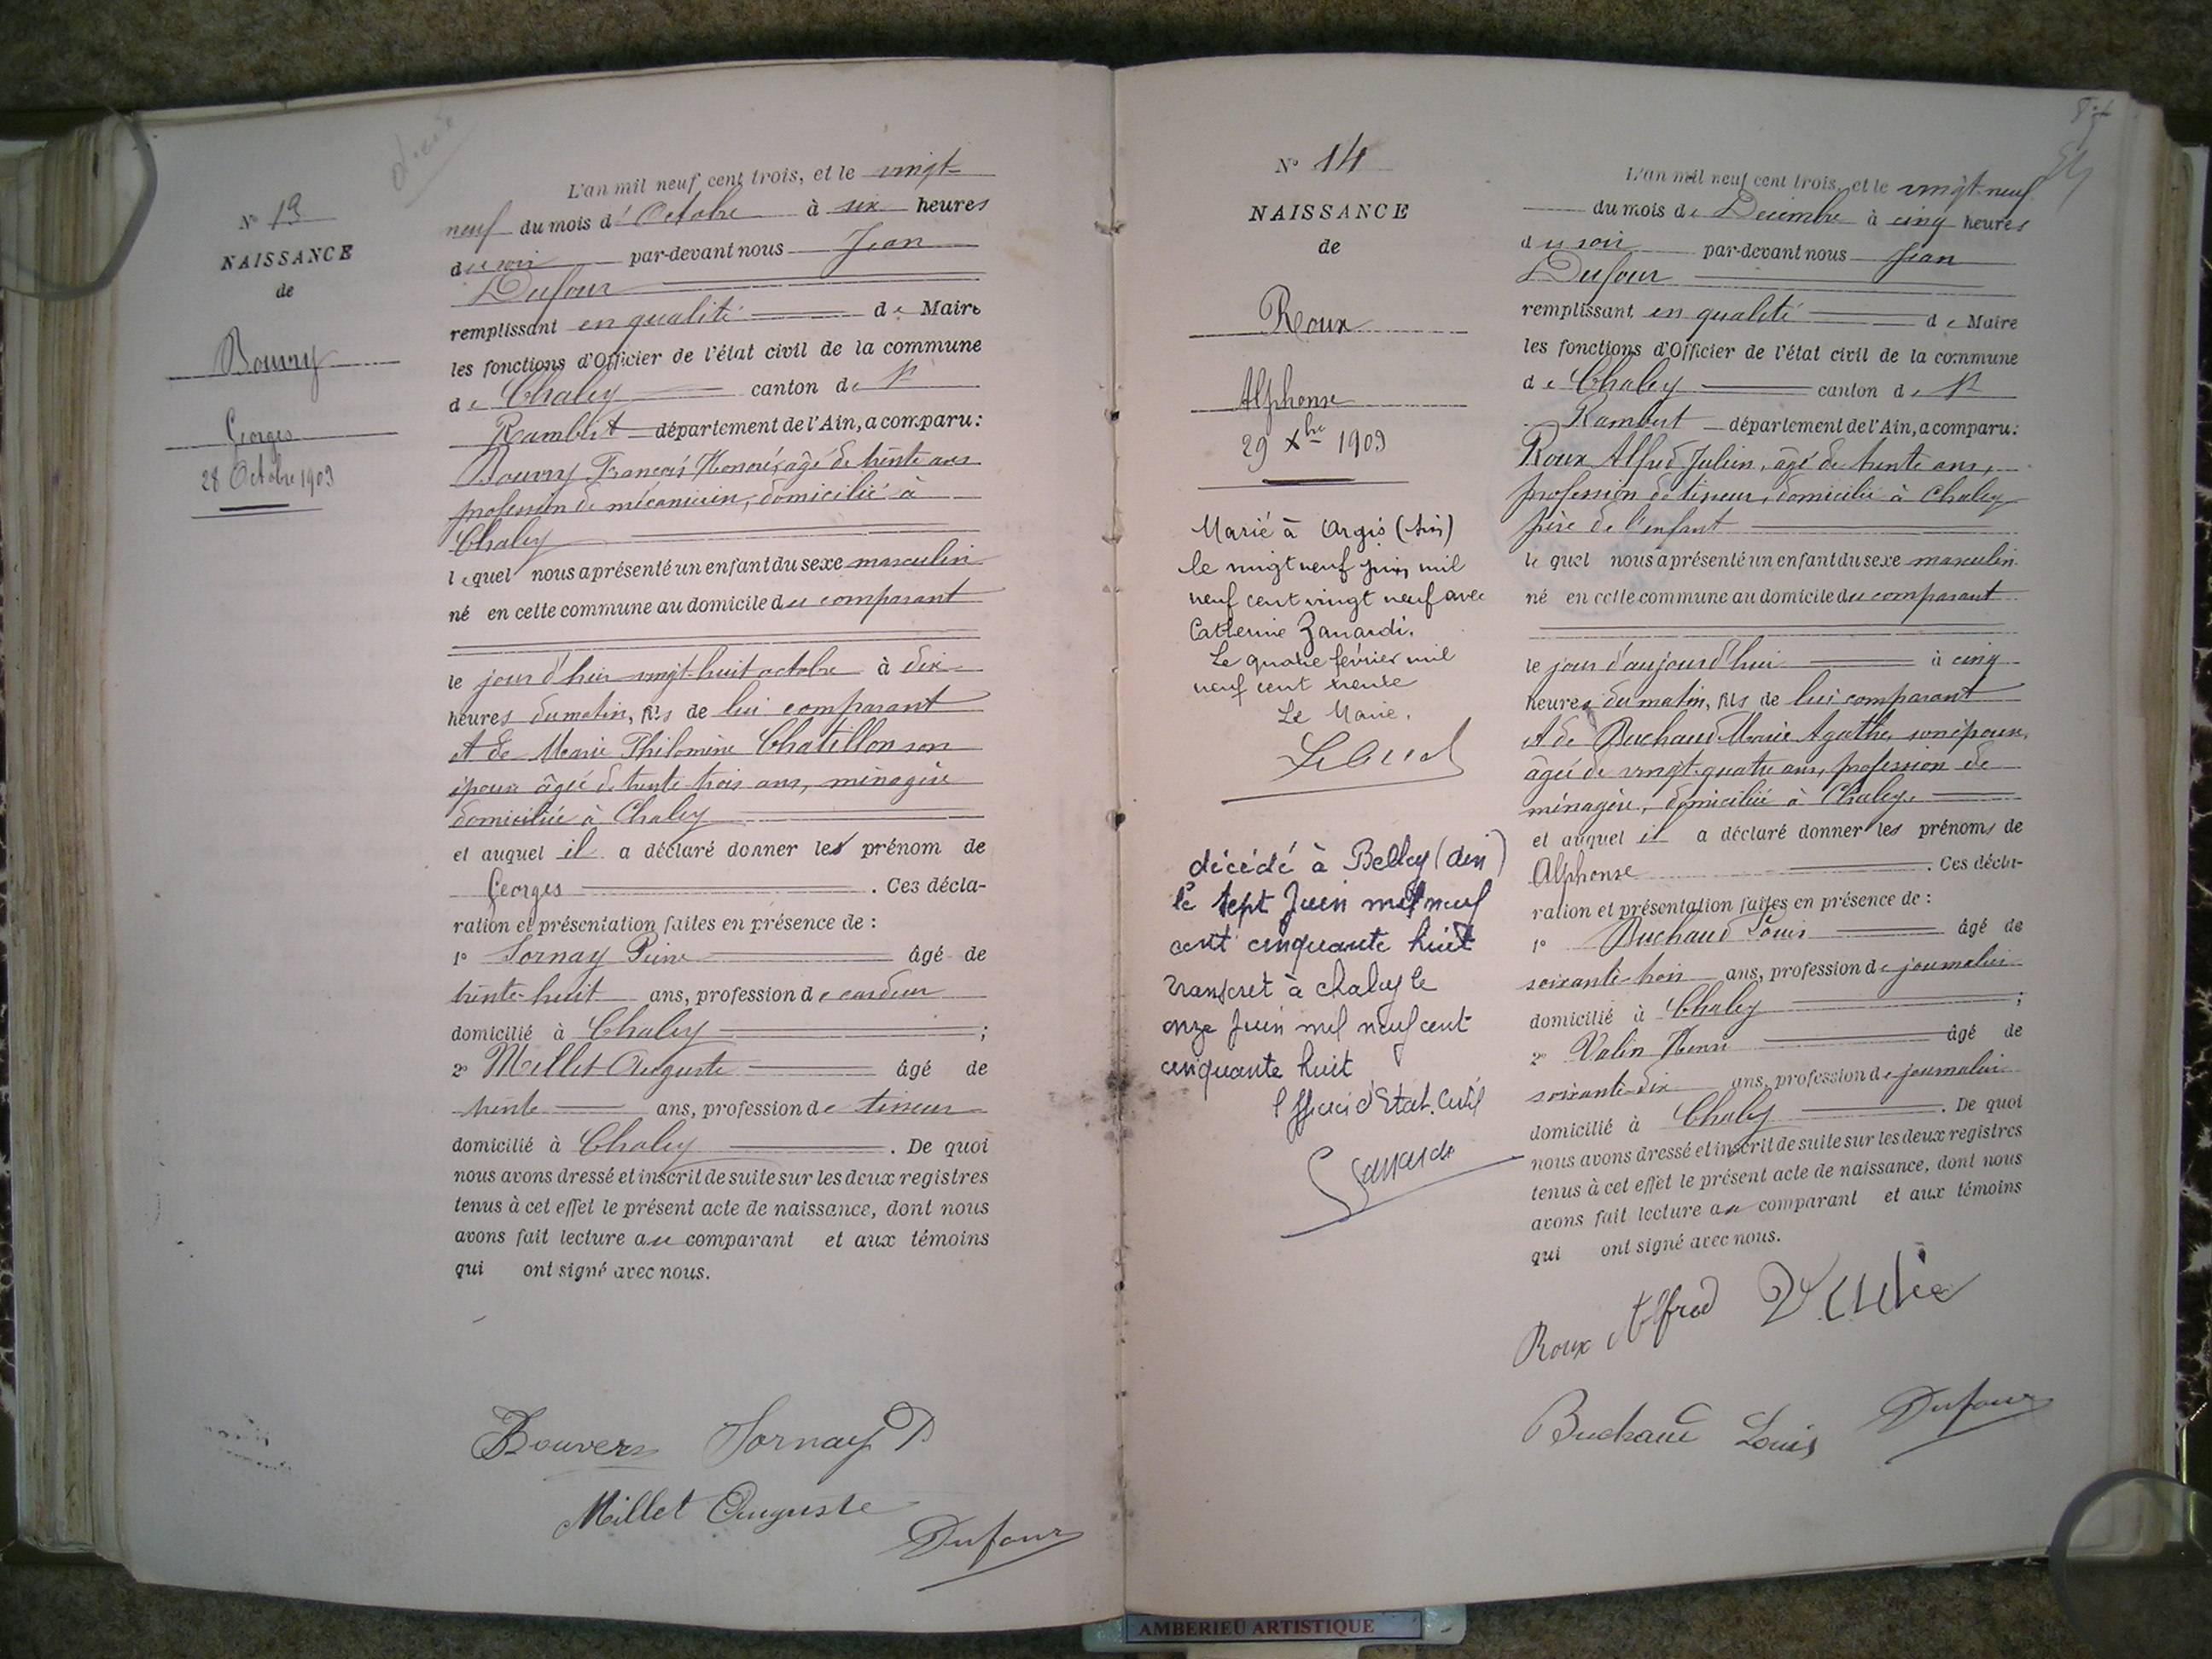 N° 13
NAISSANCE
de
Bouvry
Georges
28 Octobre 1903
L'an mil neuf cent trois, et le vingt-
neuf du mois d'Octobre à six heures
du soir par-devant nous Jean
Dufour
remplissant en qualité de Maire
les fonctions d'Officier de l'état civil de la commune
de Chaley canton de St
Rambert département de l'Ain, a comparu:
Bouvry François Honoré, âgé de trente ans
profession de mécanicien, domicilié à
Chaley
lequel nous a présenté un enfant du sexe masculin
né en cette commune au domicile du comparant
le jour d'hier vingt-huit octobre à dix
heures du matin, fils de lui comparant
et de Marie Philomène Chatillon son
épouse âgée de trente trois ans, ménagère
domiciliée à Chaley
et auquel il a déclaré donner les prénom de
Georges . Ces décla-
ration et présentation faites en présence de :
1° Sornay Pierre âgé de
trente-huit ans, profession de cardeur
domicilié à Chaley ;
2° Millet Auguste âgé de
trente ans, profession de tisseur
domicilié à Chaley . De quoi
nous avons dressé et inscrit de suite sur les deux registres
tenus à cet effet le présent acte de naissance, dont nous
avons fait lecture au comparant et aux témoins
qui ont signé avec nous.
Sornay P
Millet Auguste
Dufour
N° 14
NAISSANCE
de
Roux
Alphonse
29 Xbre 1903
Marié à Argis (Ain)
le vingt neuf juin mil
neuf cent vingt neuf avec
Catherine Zanardi.
Le quatre février mil
neuf cent trente
Le Maire.
décédé à Belley (Ain)
le sept Juin mil neuf
cent cinquante huit
transcrit à chaley le
onze Juin mil neuf cent
cinquante huit
l'officier d'Etat. Civil
L'an mil neuf cent trois, et le vingt-neuf
du mois de Décembre à cinq heures
du soir par-devant nous Jean
Dufour
remplissant en qualité de Maire
les fonctions d'Officier de l'état civil de la commune
de Chaley canton de St
Rambert département de l'Ain, a comparu:
Roux Alfred Julien, âgé de trente ans,
profession de tisseur, domicilié à Chaley
père de l'enfant
lequel nous a présenté un enfant du sexe masculin
né en cette commune au domicile du comparant
le jour d'aujourd'hui à cinq
heures du matin, fils de lui comparant
et de Buchaud Marie Agathe, son épouse,
âgée de vingt-quatre ans, profession de
ménagère, domiciliée à Chaley.
et auquel il a déclaré donner les prénoms de
Alphonse . Ces décla-
ration et présentation faites en présence de :
1° Buchaud Louis âgé de
soixante-trois ans, profession de journalier
domicilié à Chaley ;
2° Valin Henri âgé de
soixante-dix ans, profession de journalier
domicilié à Chaley . De quoi
nous avons dressé et inscrit de suite sur les deux registres
tenus à cet effet le présent acte de naissance, dont nous
avons fait lecture au comparant et aux témoins
qui ont signé avec nous.
Roux Alfred
Buchaud Louis Dufour
AMBERIEU ARTISTIQUE